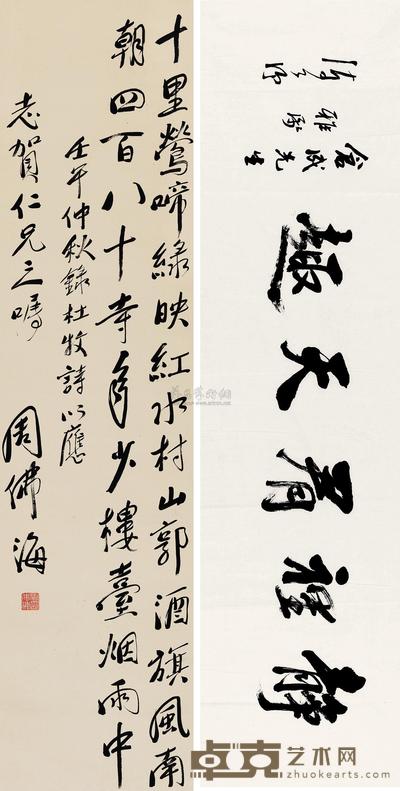 靜裡有天趣
先生
雅屬
十里鶯啼綠映紅水村山郭酒旗風南
朝四百八十寺多少樓臺烟雨中
壬午仲秋錄杜牧詩以應
志賀仁兄之囑
周佛海
卓克艺术网
zhuokearts.com